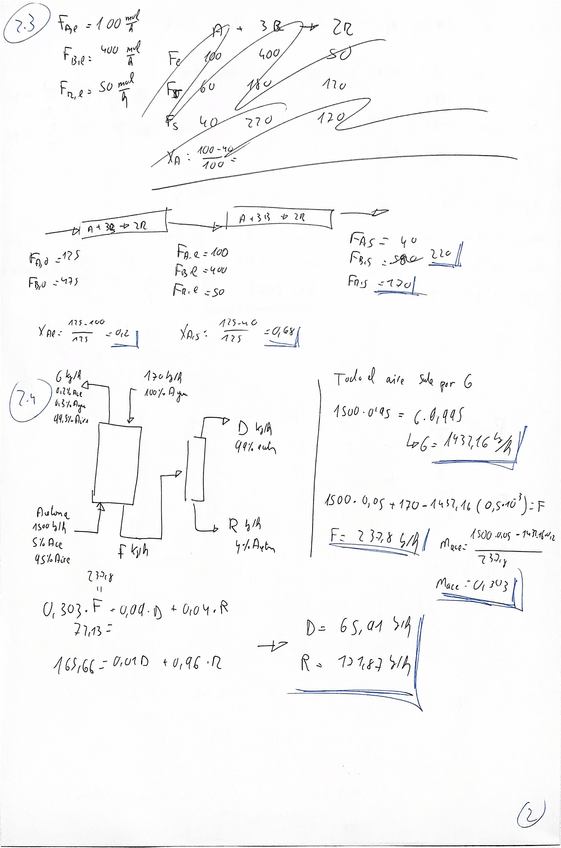 2.3
F_A,e = 100 mol/h
F_B,e = 400 mol/h
F_R,e = 50 mol/h
A + 3B → 2R
Fe 100 400 50
60 180 120
Fs 40 220 120
X_A: (100-40)/100 =
A + 3B → 2R
A + 3B → 2R
F_A,0 = 125
F_B,0 = 475
F_A,e = 100
F_B,e = 400
F_R,e = 50
F_AS = 40
F_B,S = 220
F_R,S = 170
X_Ae = (125-100)/125 = 0,2
X_A,S: (125-40)/125 = 0,68
2.4
G kg/h
0,2% Ace
0,3% Agua
99,5% Aire
170 kg/h
100% Agua
D kg/h
99%
R kg/h
4%
1500 kg/h
5% Ace
95% Aire
F kg/h
Todo el aire sale por G
1500·0,95 = G·0,995
↳ G = 1432,16 kg/h
1500·0,05 + 170 - 1432,16 (0,5·10³) = F
F = 237,8 kg/h
m_ace = (1500·0,05 - 1432,16·0,2)/237,8
m_ace = 0,303
237,8
"
0,303·F = 0,99·D + 0,04·R
72,13 =
165,66 = 0,01D + 0,96·R
→ D = 65,91 kg/h
R = 171,87 kg/h
2